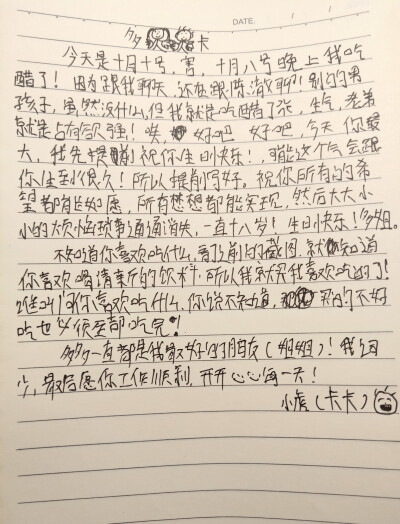 DATE.
多 卡
今天是十月十号,害,十月八号晚上我吃
醋了!因为跟我聊天,还在跟陈清聊!别的男
孩子,虽然没什么,但我就是吃醋了哎,生气,老弟
就是占有欲强!唉,好吧 好吧,今天你最
大,我先提前祝你生日快乐!
你生 很久!所以提前写好。祝你所有的希
望都能如愿,所有梦想都能实现,然后大大小
小的烦恼琐事通通消失,一直十八岁!生日快乐!多姐。
不知道你喜欢吃什么,看了之前的截图,就知道
你喜欢喝清新的饮料,所以我就买我喜欢吃的了!
你喜欢吃什么,你说不知道, 买的不好
吃也必须全部吃完!
多多一直都是我最好的朋友(姐姐)!我
少,最后愿你工作顺利,开开 每一天!
小虎(卡卡)